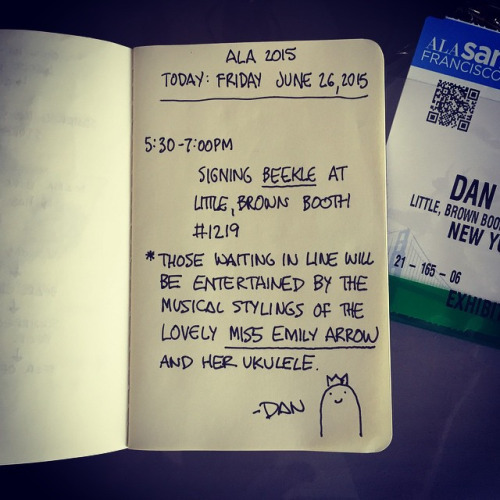 ALA 2015
TODAY: FRIDAY JUNE 26, 2015
5:30-7:00PM
SIGNING BEEKLE AT
LITTLE, BROWN BOOTH
#1219
* THOSE WAITING IN LINE WILL
BE ENTERTAINED BY THE
MUSICAL STYLINGS OF THE
LOVELY MISS EMILY ARROW
AND HER UKULELE.
-DAN
ALA san
FRANCISCO
DAN
LITTLE, BROWN
NEW
21 - 165 - 06